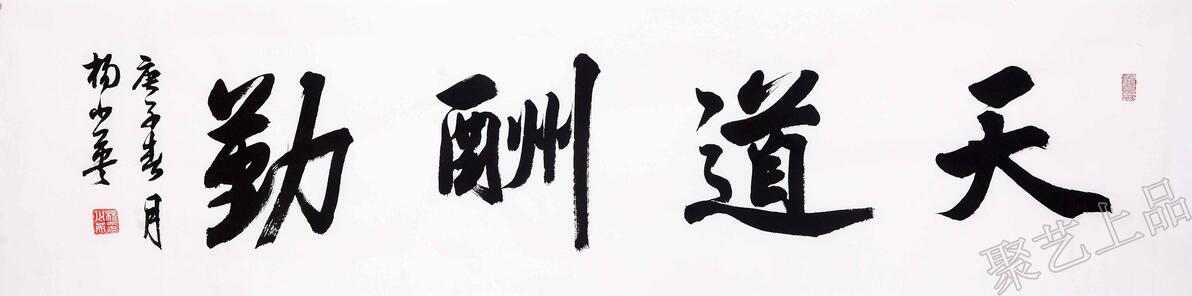 天道酬勤
庚子春月
杨小英
聚艺上品